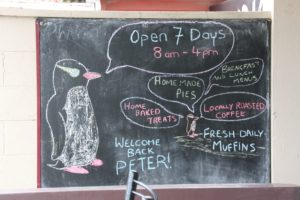 Open 7 Days
8am-4pm
BREAKFAST
AND LUNCH
MENUS
HOME MADE
PIES
HOME
BAKED
TREATS
LOCALLY ROASTED
COFFEE
FRESH DAILY
MUFFINS
WELCOME
BACK
PETER!